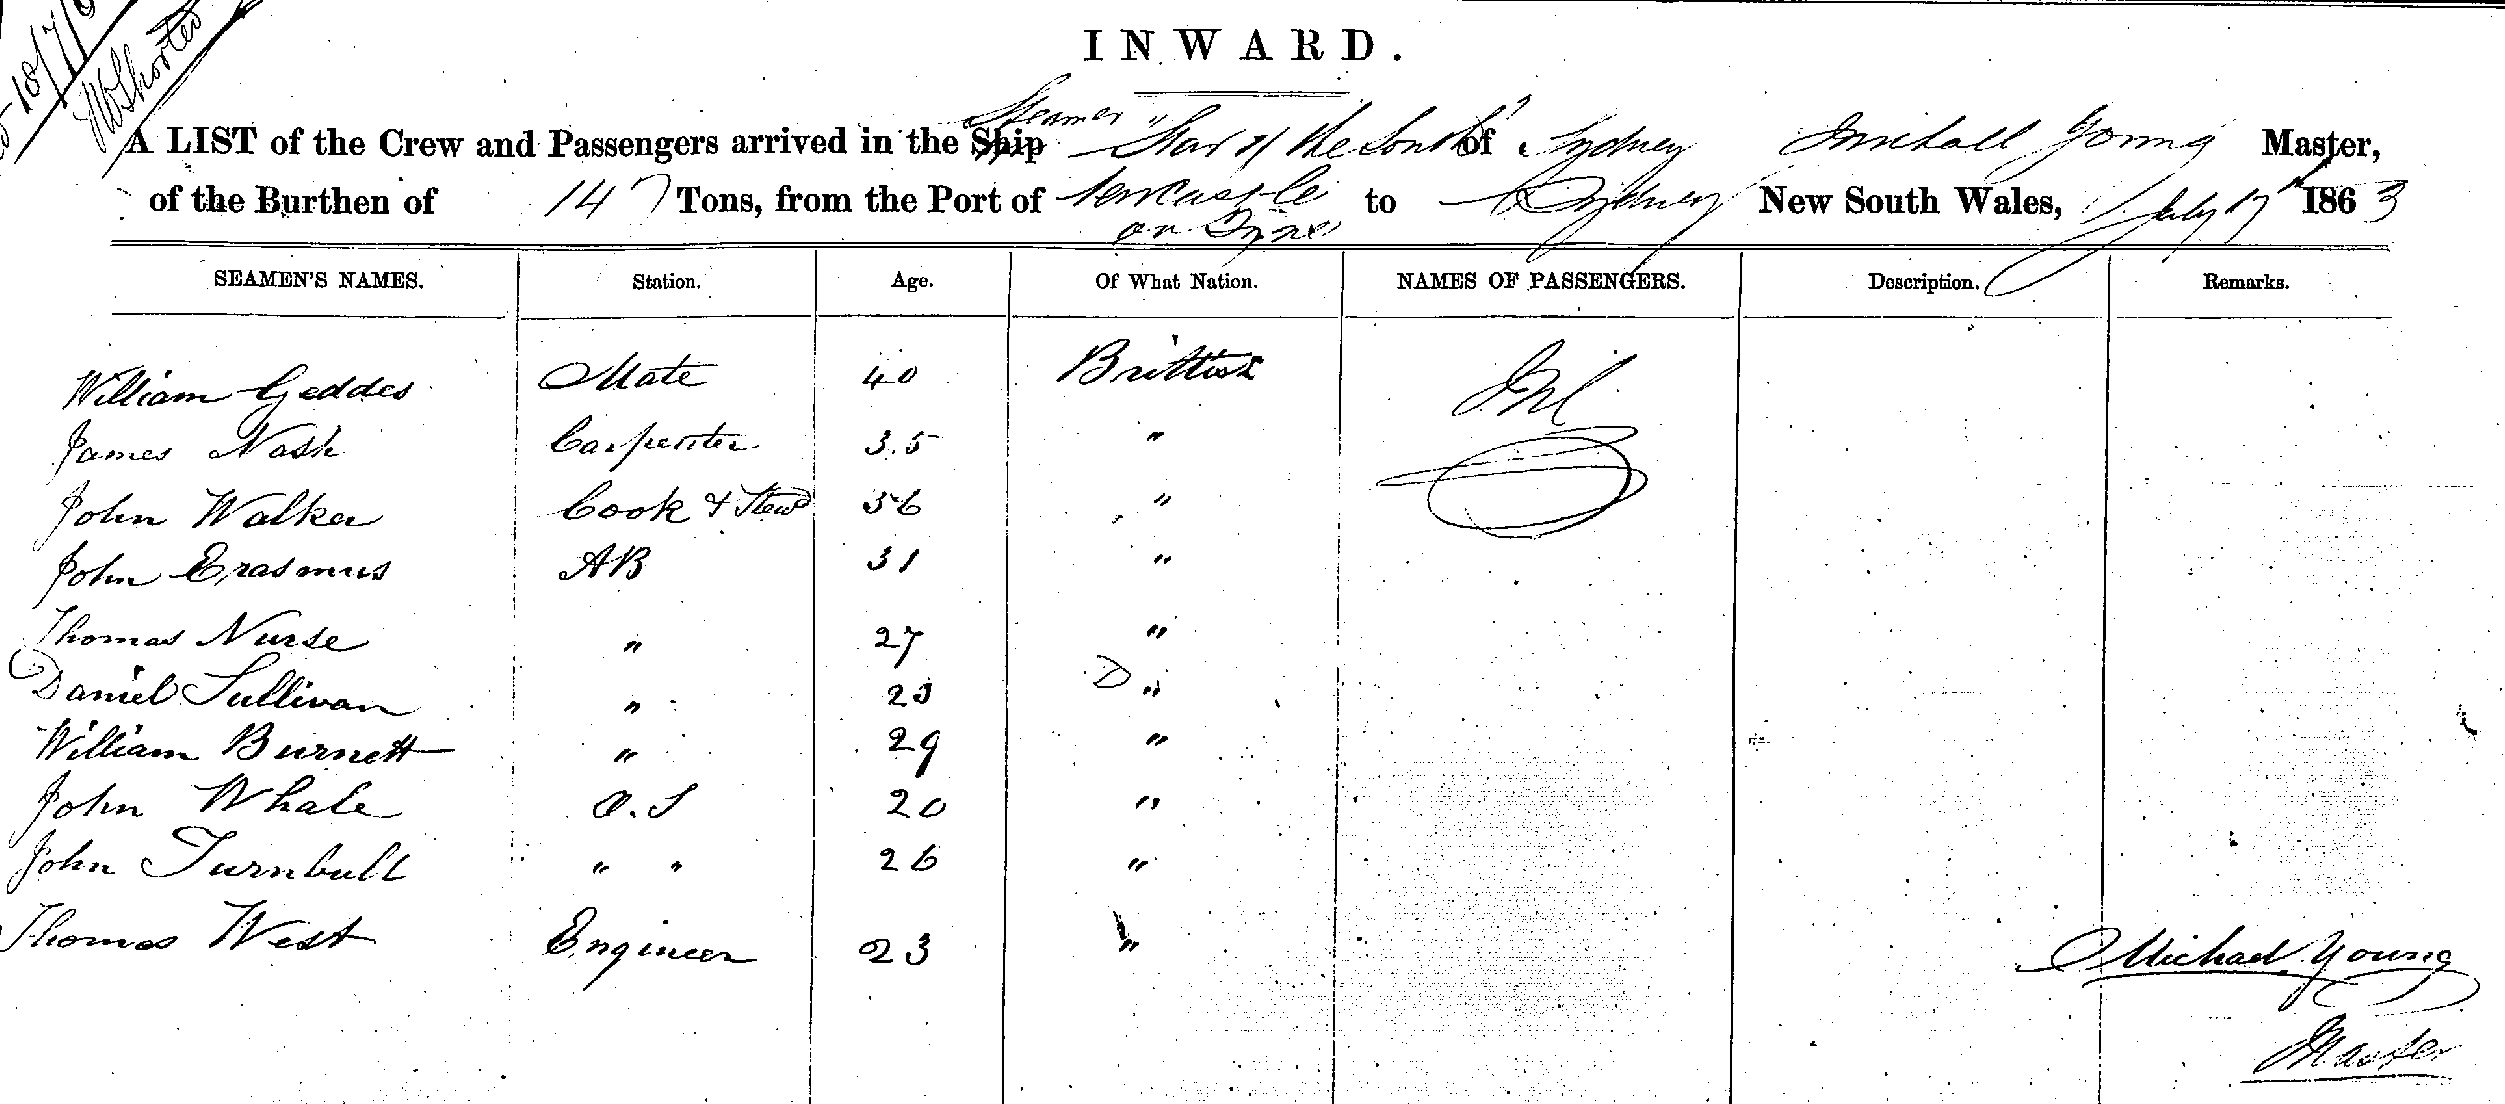 10/7/6
INWARD.
Steamer
A LIST of the Crew and Passengers arrived in the Ship "Star of the South" of Sydney Young Master,
of the Burthen of 147 Tons, from the Port of Newcastle to Sydney New South Wales, July 17th 1863
on Tyne
SEAMEN'S NAMES. Station. Age. Of What Nation. NAMES OF PASSENGERS. Description. Remarks.
William Geddes Mate 40 Brittish Nil
James Nash Carpenter 35 "
John Walker Cook & Stewd 36 "
John Erasmus AB 31 "
Thomas Nurse " 27 "
Daniel Sullivan " 23 D "
William Burnett " 29 "
John Whale O.S 20 "
John Turnbull " " 26 "
Thomas West Engineer 23 "
Michael Young
Master